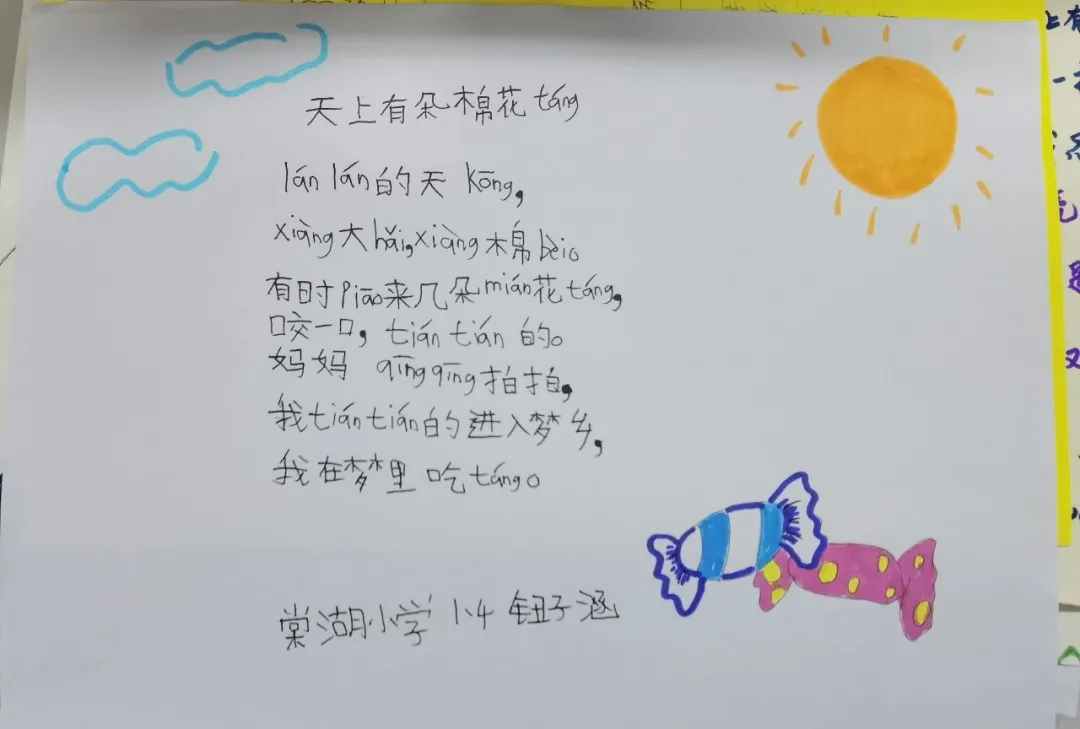 天上有朵棉花táng
lán lán的天 kōng,
xiàng大hǎi,xiàng棉bèi。
有时piāo来几朵mián花táng,
咬一口，tián tián 的。
妈妈 qīng qīng拍拍,
我tián tián的进入梦乡,
我在梦里吃táng。
棠湖小学 1.4 钮子涵